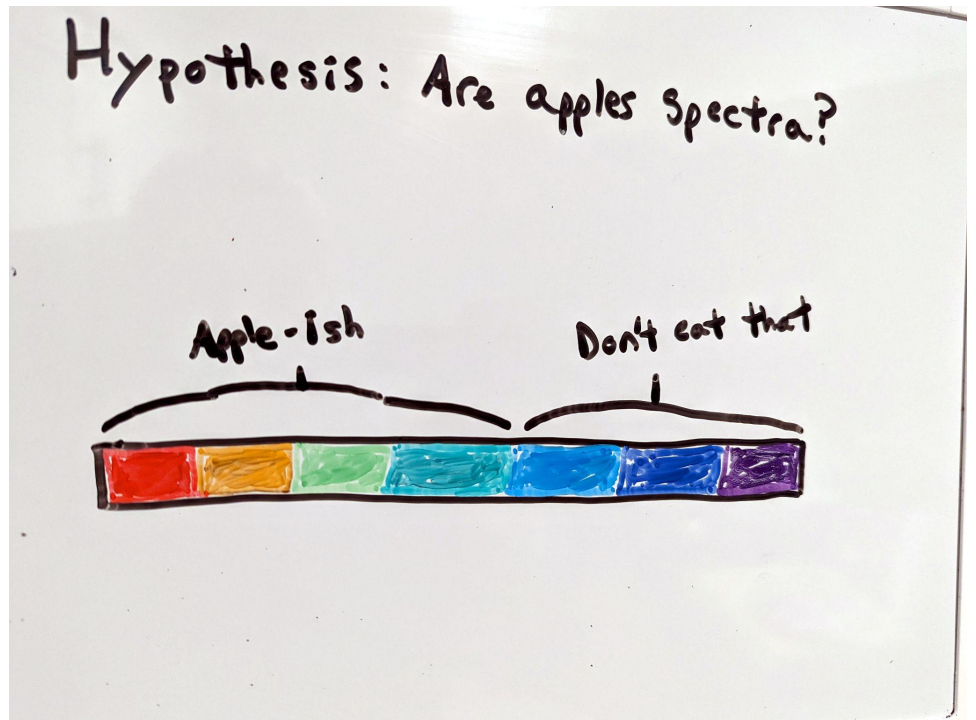 Hypothesis: Are apples spectra?
Apple-ish
Don't eat that